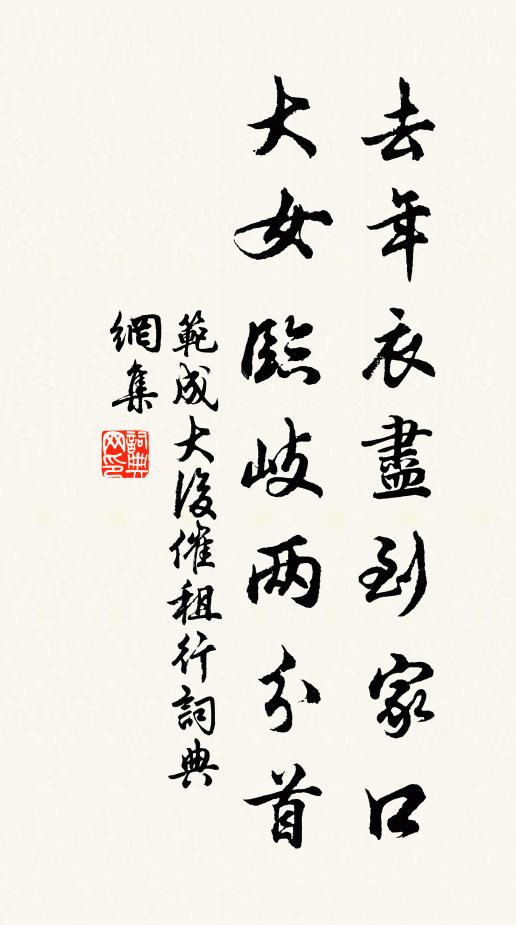 去年衣盡到家口
大女臨歧两分首
範成大後催租行詞典
網集
詞典
网印